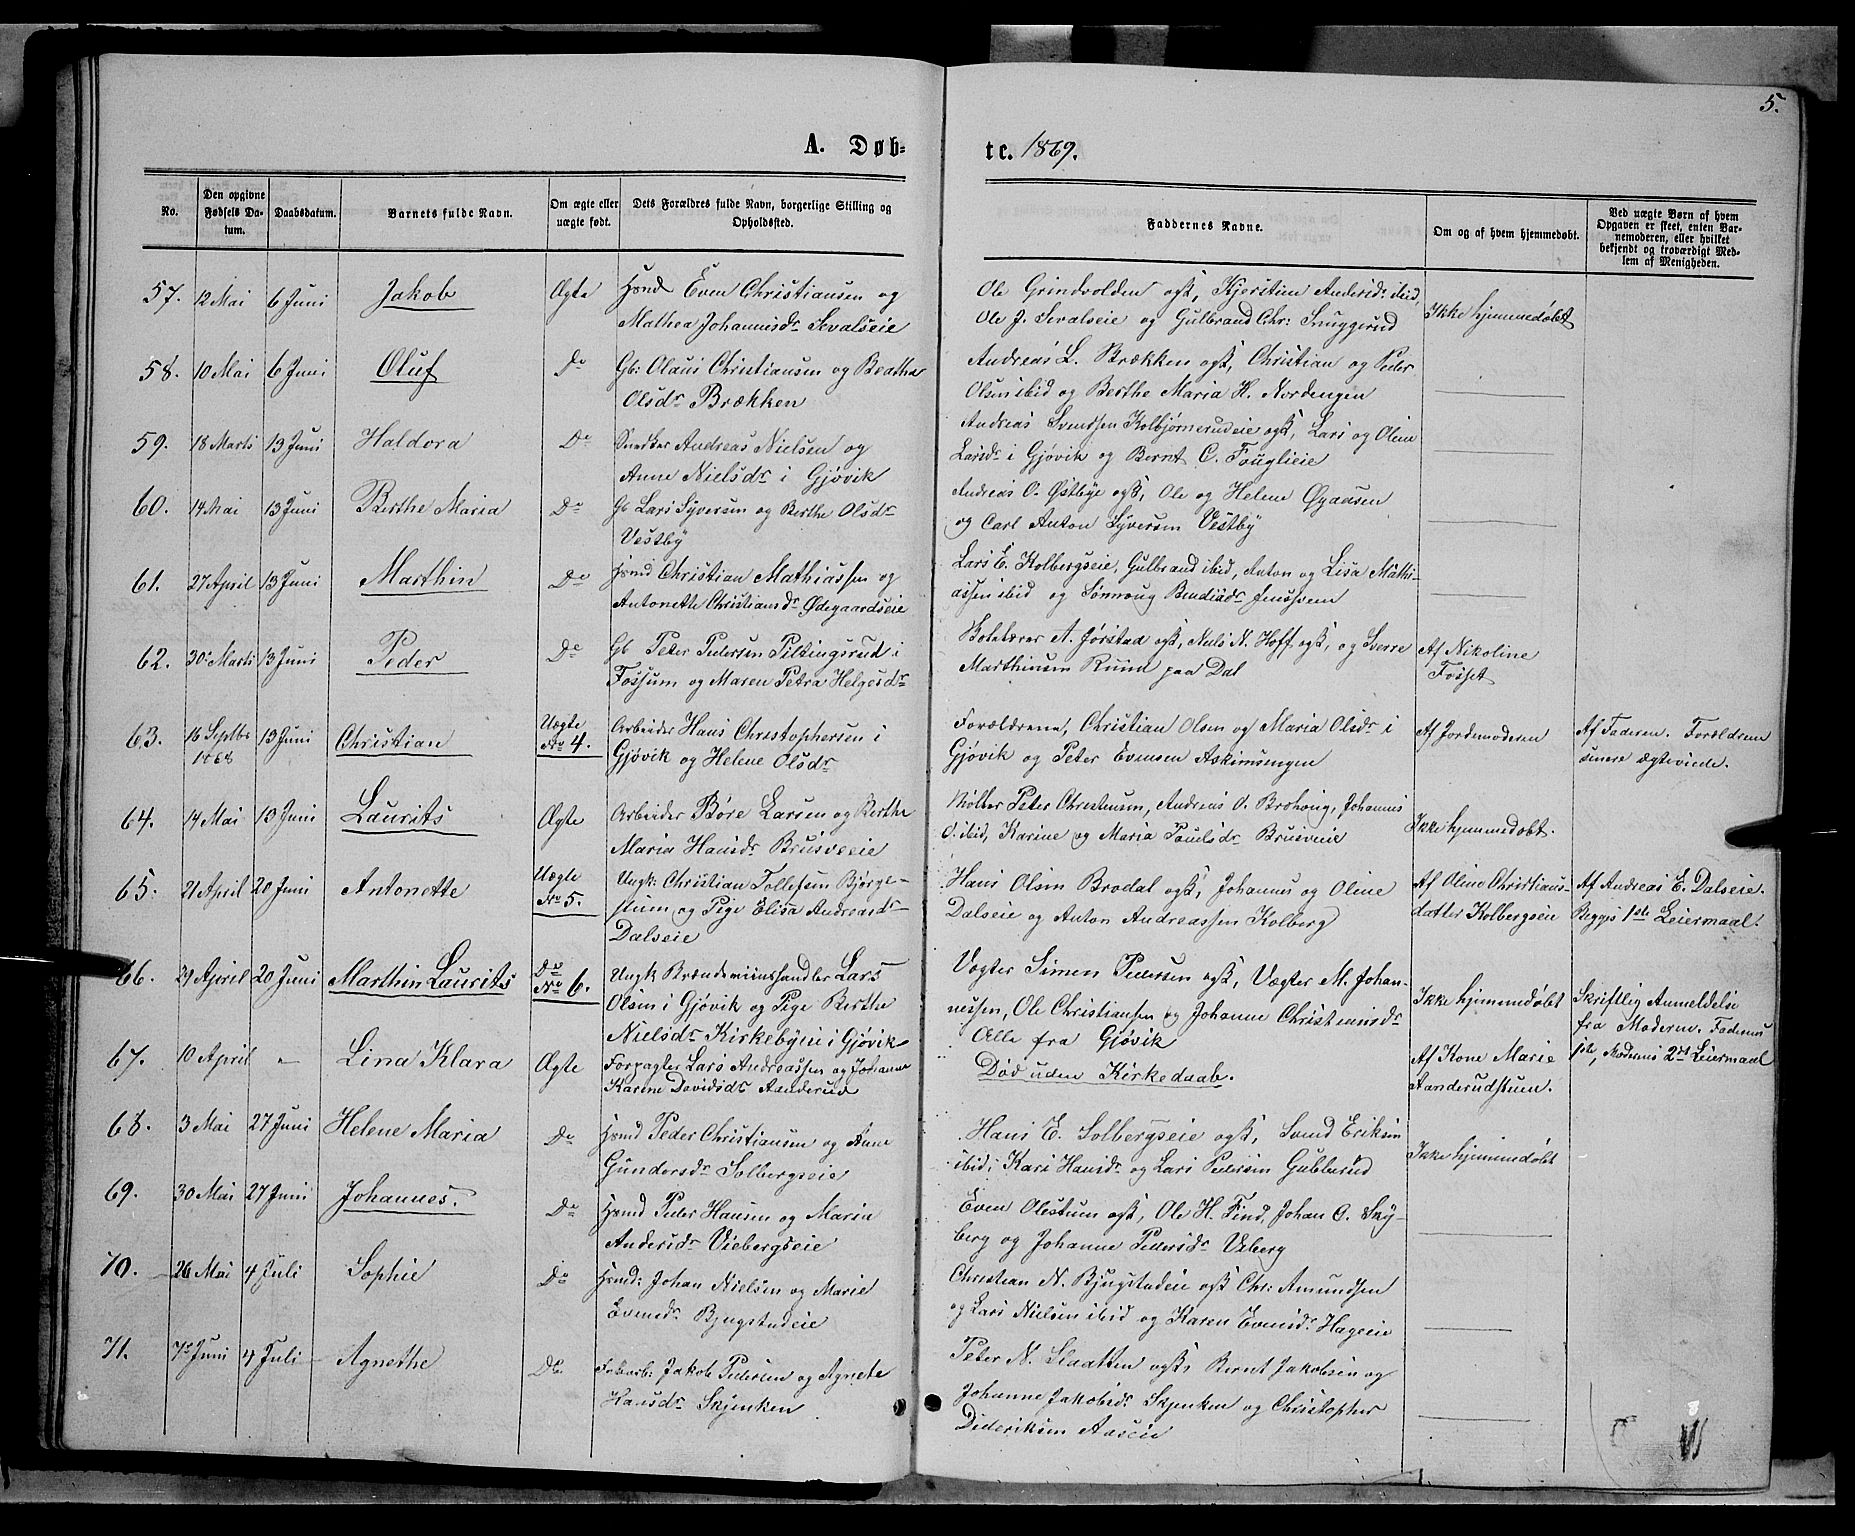 5.
A. Døb-
te. 1869.
No.
Den opgivne Fødsels Da-tum.
Daabsdatum.
Barnets fulde Navn.
Om ægte eller uægte født.
Dets Forældres fulde Navn, borgerlige Stilling og Opholdssted.
Faddernes Navne.
Om og af hvem hjemmedøbt.
Ved uægte Børn af hvem Opgaven er skeet, enten Bar-nemoderen, eller hvilket bekjendt og troværdigt Med-lem af Menigheden.
57. 12 Mai 6 Juni Jakob Ægte Hsmd Even Christiansen og
Mathea Johannisdr Sevalseie
Ole Grindvolden ogsk, Kjerstine Andersdr ibid,
Ole J. Sevalseie og Gulbrand Chr: Snuggerud
Ikke hjemmedøbt
58. 10 Mai 6 Juni Oluf Do Gb: Olaus Christiansen og Beathe
Olsdr Brækken
Andreas L. Brækken ogsk, Christian og Peder
Olsen ibid og Berthe Maria H. Nordengen
59. 18 Marts 13 Juni Haldora Do Snedker Andreas Nielsen og
Anne Nielsdr i Gjøvik
Andreas Svendsen Kolbjørnerudeie ogsk, Lars og Oline
Larsdr i Gjøvik og Bernt C. Fouglieie
60. 14 Mai 13 Juni Berthe Maria Do Gb Lars Syversen og Berthe Olsdr
Vestby
Andreas O. Østbye ogsk, Ole og Helene Øgaasen
og Carl Anton Syversen Vestby
61. 27 April 13 Juni Marthin Do Hsmd Christian Mathiassen og
Antonette Christiansdr Ødegaardseie
Lars E. Kolbergseie, Gulbrand ibid, Anton og Lisa Mathi-
assen ibid og Sønnoug Bendiksdr Jensvem
62. 30 Marts 13 Juni Peder Do Gb Peter Pedersen Piltingsrud i
Fossum og Maren Petra Helgesdr
A. Jørstad ogsk, Niels N. Hoff ogsk, og Sverre
Marthinsen Ruud paa Dal
Af Nikoline
Fosset
63. 16 Septbr 1868 13 Juni Christian Uægte No 4. Arbeider Hans Christophersen i
Gjøvik og Helene Olsdr
Forældrene, Christian Olsen og Maria Olsdr i
Gjøvik og Peter Evensen Askimsengen
Af Jordemoderen
Af Faderen. Forældrene
senere ægteviede.
64. 14 Mai 10 Juni Laurits Ægte Arbeider Børe Larsen og Berthe
Maria Hansdr Brusveeie
Møller Peter Christensen, Andreas O. Brohoug, Johannes
O. ibid, Karine og Maria Poulsdr Brusveie
Ikke hjemmedøbt.
65. 21 April 20 Juni Antonette Uægte No 5. Ungk: Christian Tollefsen Bjørge-
stum og Pige Elisa Andreasdr
Dalseie
Hans Olsen Brodal ogsk, Johannes og Oline
Dalseie og Anton Andreassen Kolberg
Af Oline Christians-
datter Kolbergseie
Af Andreas E. Dalseie.
Begges 1ste Leiermaal.
66. 21 April 20 Juni Marthin Laurits Do No 6. Ungk Brændeviinshandler Lars
Olsen i Gjøvik og Pige Berthe
Nielsdr Kirkebyeie i Gjøvik
Vægter Simen Pedersen ogsk, Vægter M. Johan-
nessen, Ole Christiansen og Johanne Christiansdr
Alle fra Gjøvik
Ikke hjemmedøbt
Skriftlig Anmeldelse
fra Moderne. Faderens
1ste, Moderens 2det Leiermaal
67. 10 April " Lina Klara Ægte Forpagter Lars Andreassen og Johanne
Karine Davidsdr Aanderud
Død uden Kirkedaab.
Af Kone Marie
Aanderudstuen.
68. 3 Mai 27 Juni Helene Maria Do Hsmd Peder Christiansen og Anne
Gundersdr Solbergseie
Hans E. Solbergseie ogsk, Svend Eriksen
ibid, Kari Hansdr og Lars Pedersen Gubberud
Ikke hjemmedøbt
69. 30 Mai 27 Juni Johannes. Do Hsmd Peder Hansen og Maria
Andersdr Viebergseie
Even Olestuen ogsk, Ole H. Find, Johan O. Sky-
berg og Johanne Pedersdr Veberg
70. 26 Mai 4 Juli Sophie Do Hsmd: Johan Nielsen og Marie
Evensdr Bjugstadeie
Christian N. Bjugstadeie ogsk Chr: Amundsen
og Lars Nielsen ibid og Karen Evensdr Hageeie
71. 7 Juni 4 Juli Agnethe Do Jakob Pedersen og Agnete
Hansdr Skjenken
Peter N. Slaatten ogsk, Bernt Jakobsen og
Johanne Jakobsdr Skjenken og Christopher
Dideriksen Aaseie